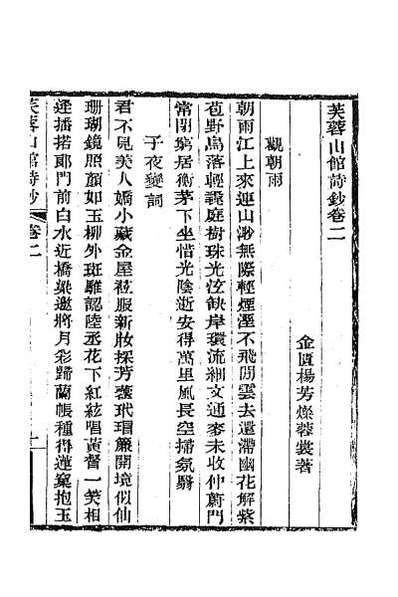 芙蓉山館詩鈔卷二
金匱楊芳燦蓉裳著
觀朝雨
朝雨江上來連山渺無際輕煙溼不飛閒雲去還滯幽花解紫
苞野鳥落輕毳庭樹珠光泫缺岸環流細文通麥未收仲蔚門
常閉窮居衡茅下坐惜光陰逝安得萬里風長空掃氛翳
子夜變詞
君不見美人嬌小藏金屋袨服新妝採芳蓀玳瑁簾開境似仙
珊瑚鏡照顏如玉柳外斑騅認陸丞花下紅絃唱黃督一笑相
逢播搭郎門前白水近橋梁邀將月彩歸蘭帳種得蓮窠抱玉
芙蓉山館詩鈔
卷二